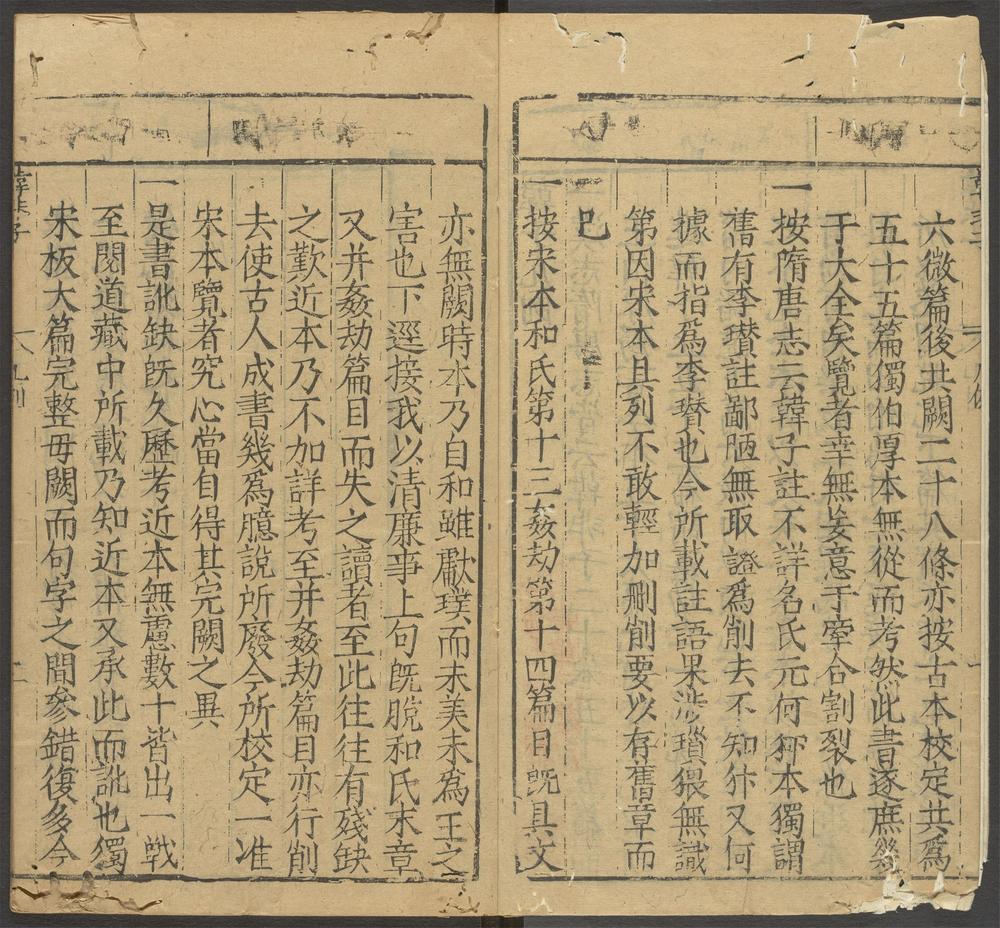 六微篇後共闕二十八條亦按古本校定共爲
五十五篇獨伯厚本無從而考然此書遂庶幾
于大全矣覽者幸無妄意于牽合割裂也
一按隋唐志云韓子註不詳名氏元何犿本獨謂
舊有李瓚註鄙陋無取證爲削去不知犿又何
據而指爲李瓚也今所載註語果涉瑣猥無識
第因宋本具列不敢輕加刪削要以存舊章而
已
一按宋本和氏第十三姦劫第十四篇目旣具文
亦無闕時本乃自和雖獻璞而未美未爲王之
害也下逕接我以清廉事上句旣脫和氏末章
又并姦劫篇目而失之讀者至此往往有殘缺
之歎近本乃不加詳考至并姦劫篇目亦行削
去使古人成書幾爲臆說所廢今所校定一准
宋本覽者究心當自得其完闕之異
一是書訛缺旣久歷考近本無慮數十皆出一轍
至閱道藏中所載乃知近本又承此而訛也獨
宋板大篇完整毋闕而句字之間參錯復多今
韓非子